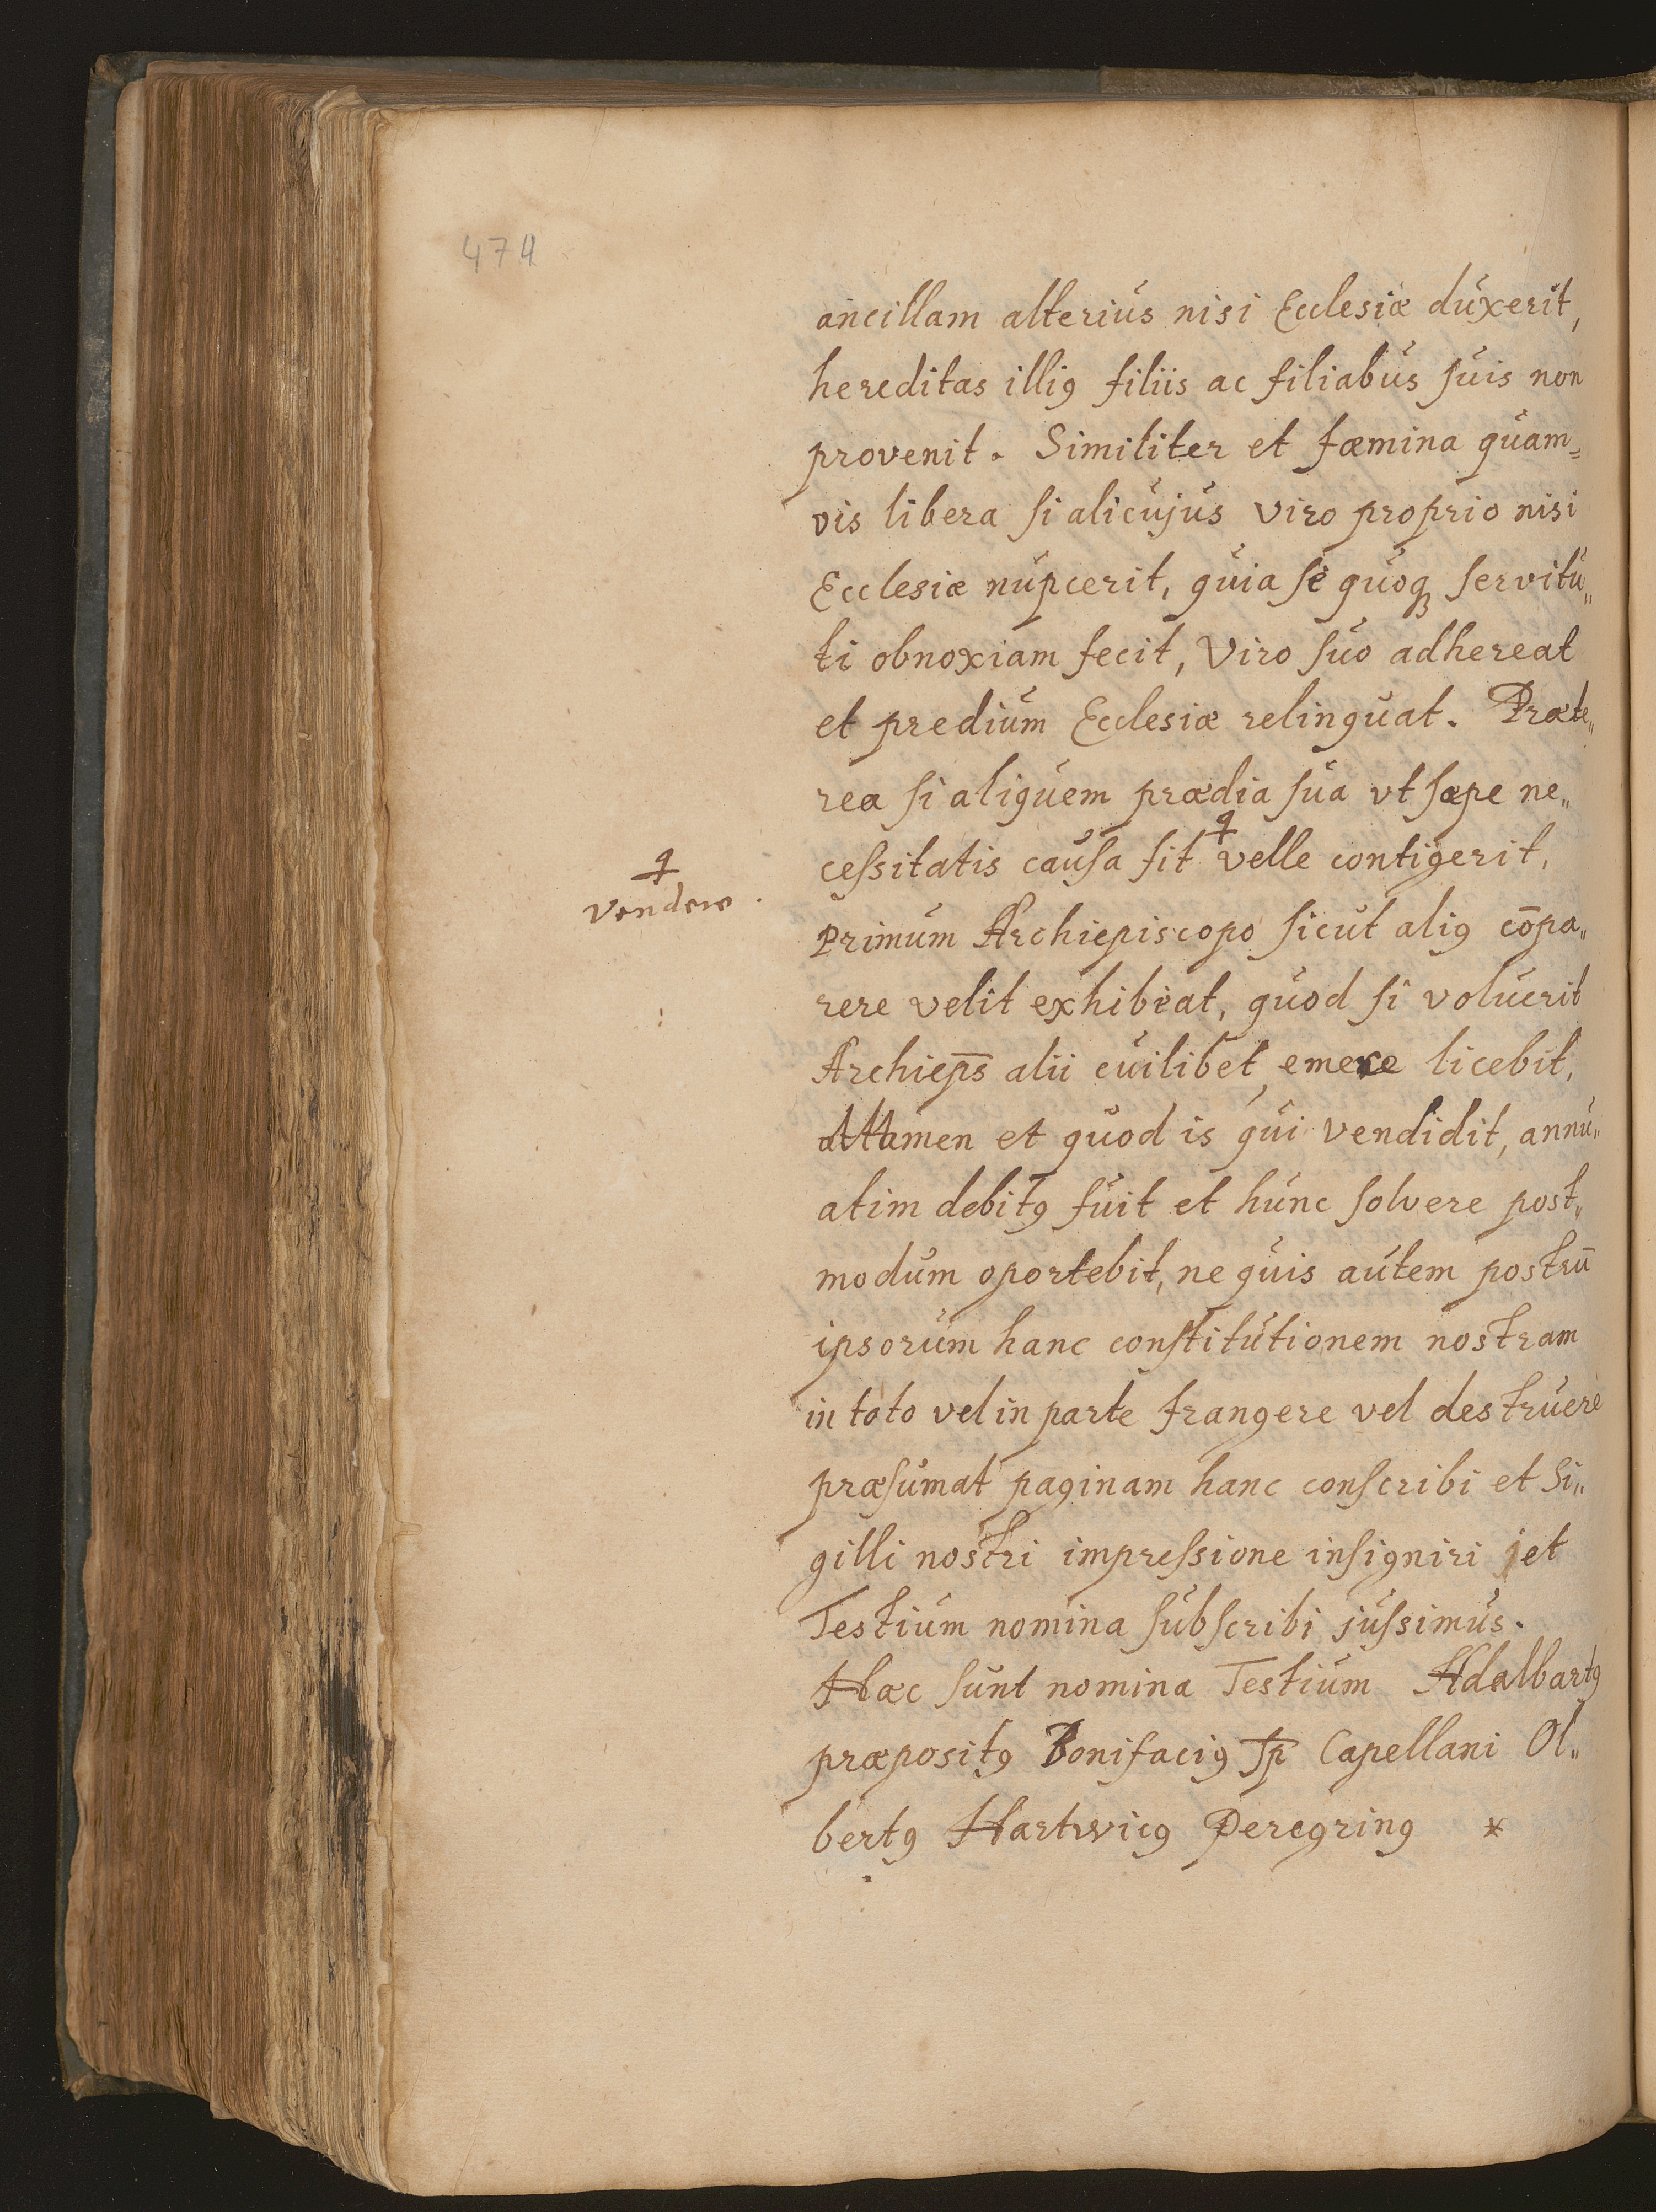 474
ancillam alterius nisi Ecclesiæ duxerit,
hereditas illiꝰ filiis ac filiabus ſuis non
provenit. Similiter et fæmina quam=
vis libera ſi alicujus viro proprio nisi
Ecclesiæ nupcerit, quia ſe quoqꝫ ſervitu„
ti obnoxiam fecit, Viro ſuo adhereat
et predium Ecclesiæ relinquat. Præte„
rea ſi aliquem prædia ſua vt ſæpe ne„
ceſsitatis cauſa fit velle contigerit,
vendere.
Primum Archiepiscopo ſicut aliꝰ cōpa„
rere velit exhibeat, quod ſi voluerit
Archiep̄s alii cuilibet emere licebit,
attamen et quod is qui vendidit, annu„
atim debitꝰ fuit et hunc ſolvere post„
modum oportebit, ne quis autem postrū
ipsorum hanc conſtitutionem nostram
in toto vel in parte frangere vel destruere
præſumat paginam hanc conſcribi et Si„
gilli nostri impreſsione inſigniri et
Testium nomina ſubſcribi juſsimus.
Hæc ſunt nomina Testium Adalbartꝰ
præpositꝰ Bonifaciꝰ Capellani Ol„
bertꝰ Hartwicꝰ Peregrinꝰ *